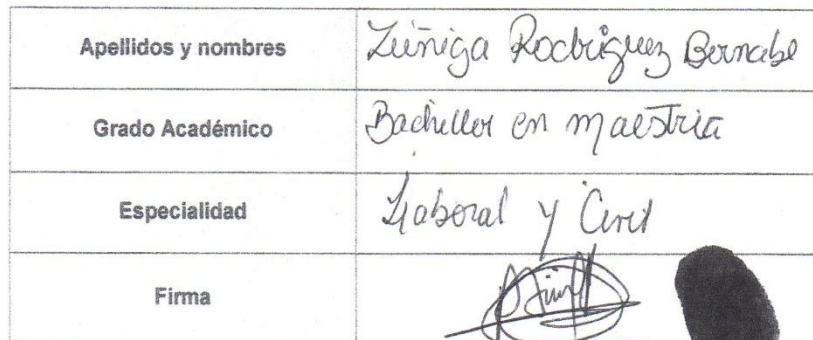 Apellidos y nombres Zúñiga Rodríguez Bernabe
Grado Académico Bachiller en maestria
Especialidad Laboral y Civil
Firma